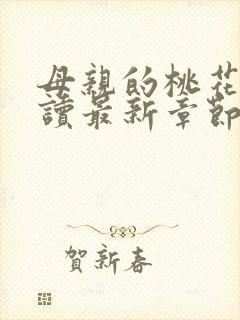 母親的桃花
讀最新章節
賀新春